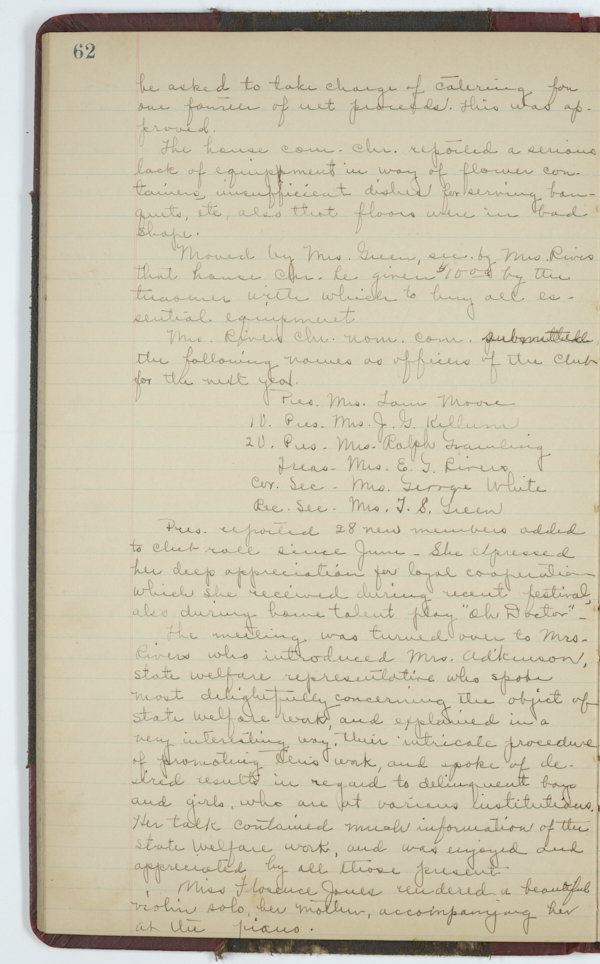 62
be asked to take charge of catering for
one fourth of net proceeds. This was ap-
proved.
The house com. Chr. reported a serious
lack of equippment in way of flower con-
tainers, insufficient dishes for serving ban-
quits, etc, also that floors were in bad
shape.
Moved by Mrs. Green, sec. by Mrs. Rivers
that house Chr. be given $10.00 by the
treasurer with which to buy all es-
sential equipment
Mrs. Rivers Chr. nom. com. submitted
the following names as officers of the Club
for the next year.
Pres. Mrs. Lam Moore
1 V. Pres. Mrs. J. G. Kellum
2 V. Pres. Mrs. Ralph Grambling
Treas- Mrs. E. G. Rivers
Cor. Sec - Mrs. George White
Rec. Sec. - Mrs. T. S. Green
Pres. reported 28 new members added
to club roll since June - She expressed
her deep appreciation for loyal cooperation
which she received during recent festival,
also during home talent play "Oh Doctor" -
The meeting was turned over to Mrs.
Rivers who introduced Mrs. Adkinson,
state welfare representative who spoke
most delightfully concerning the object of
state welfare work, and explained in a
very interesting way, their intricate procedure
of promoting this work, and spoke of de-
sired results in regard to delinquent boys
and girls, who are at various institutions.
Her talk contained much information of the
state welfare work, and was enjoyed and
appreciated by all those present
Miss Florence Jones rendered a beautiful
violin solo, her mother, accompanying her
at the piano.